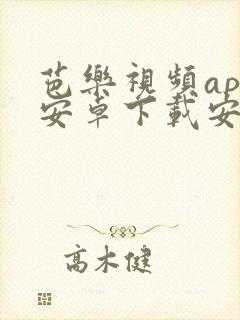 芭樂視頻ap
安卓下載安
高木健